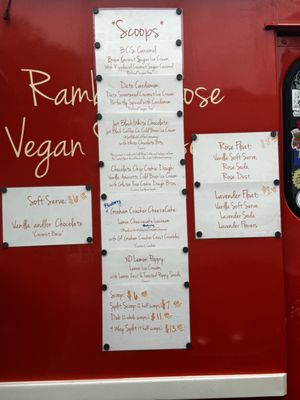 *Scoops*
B.C.S. Caramel
Brown Coconut Sugar Ice Cream
With Ripples of Coconut Sugar Caramel
Date Cardamom
Date Sweetened Coconut Ice Cream
Perfectly Spiced with Cardamom
Jet Black/White Chocolate
Jet Black Coffee Co. Cold Brew Ice Cream
with White Chocolate
Chocolate Chip Cookie Dough
Vanilla Amaretto Cold Brew Ice Cream
with Gluten Free Cookie Dough Bites
Blueberry
Graham Cracker Cheesecake
Lemon Cheesecake Ice Cream
with GF Graham Cracker Crust Crumbles
XO Lemon Poppy
Lemon Ice Cream
with Lemon Zest & Toasted Poppy Seeds
Scoop: $6
Split Scoop (2 half scoops) $7
Dub (2 whole scoops) $11
4 Way Split (4 half scoops) $13
Ramb ose
Vegan S
Soft Serve: $6
Vanilla and/or Chocolate
Coconut Base
Rose Float:
Vanilla Soft Serve
Rose Soda
Rose Dust
Lavender Float:
Vanilla Soft Serve
Lavender Soda
Lavender Flowers